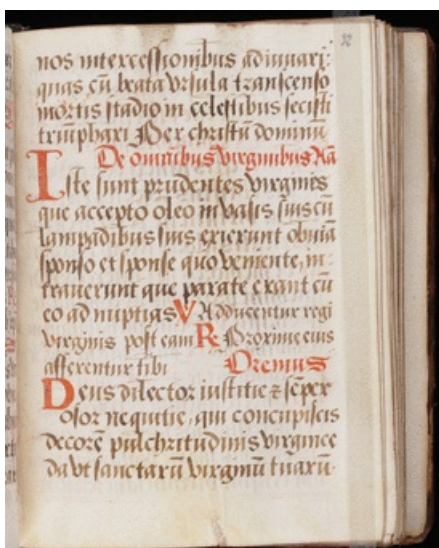 92
nos intercessionibus adiuuari:
quas cū beata vrsula transcenso
mortis stadio in celestibus fecisti
triūphari Per christū dominū
De omnibus virginibus Añ
Iste sunt prudentes virgines
que accepto oleo in vasis suis cū
lampadibus suis exierunt obuiā
sponso et sponse quo veniente, in
trauerunt que parate erant cū
eo ad nuptias V Adducentur regi
virgines post eam R Proxime eius
afferentur tibi Oremus
Deus dilector iustitie & sēper
olor nequitie, qui concupiscis
decorē pulchritudinis virginee
da vt sanctarū virginū tuarū